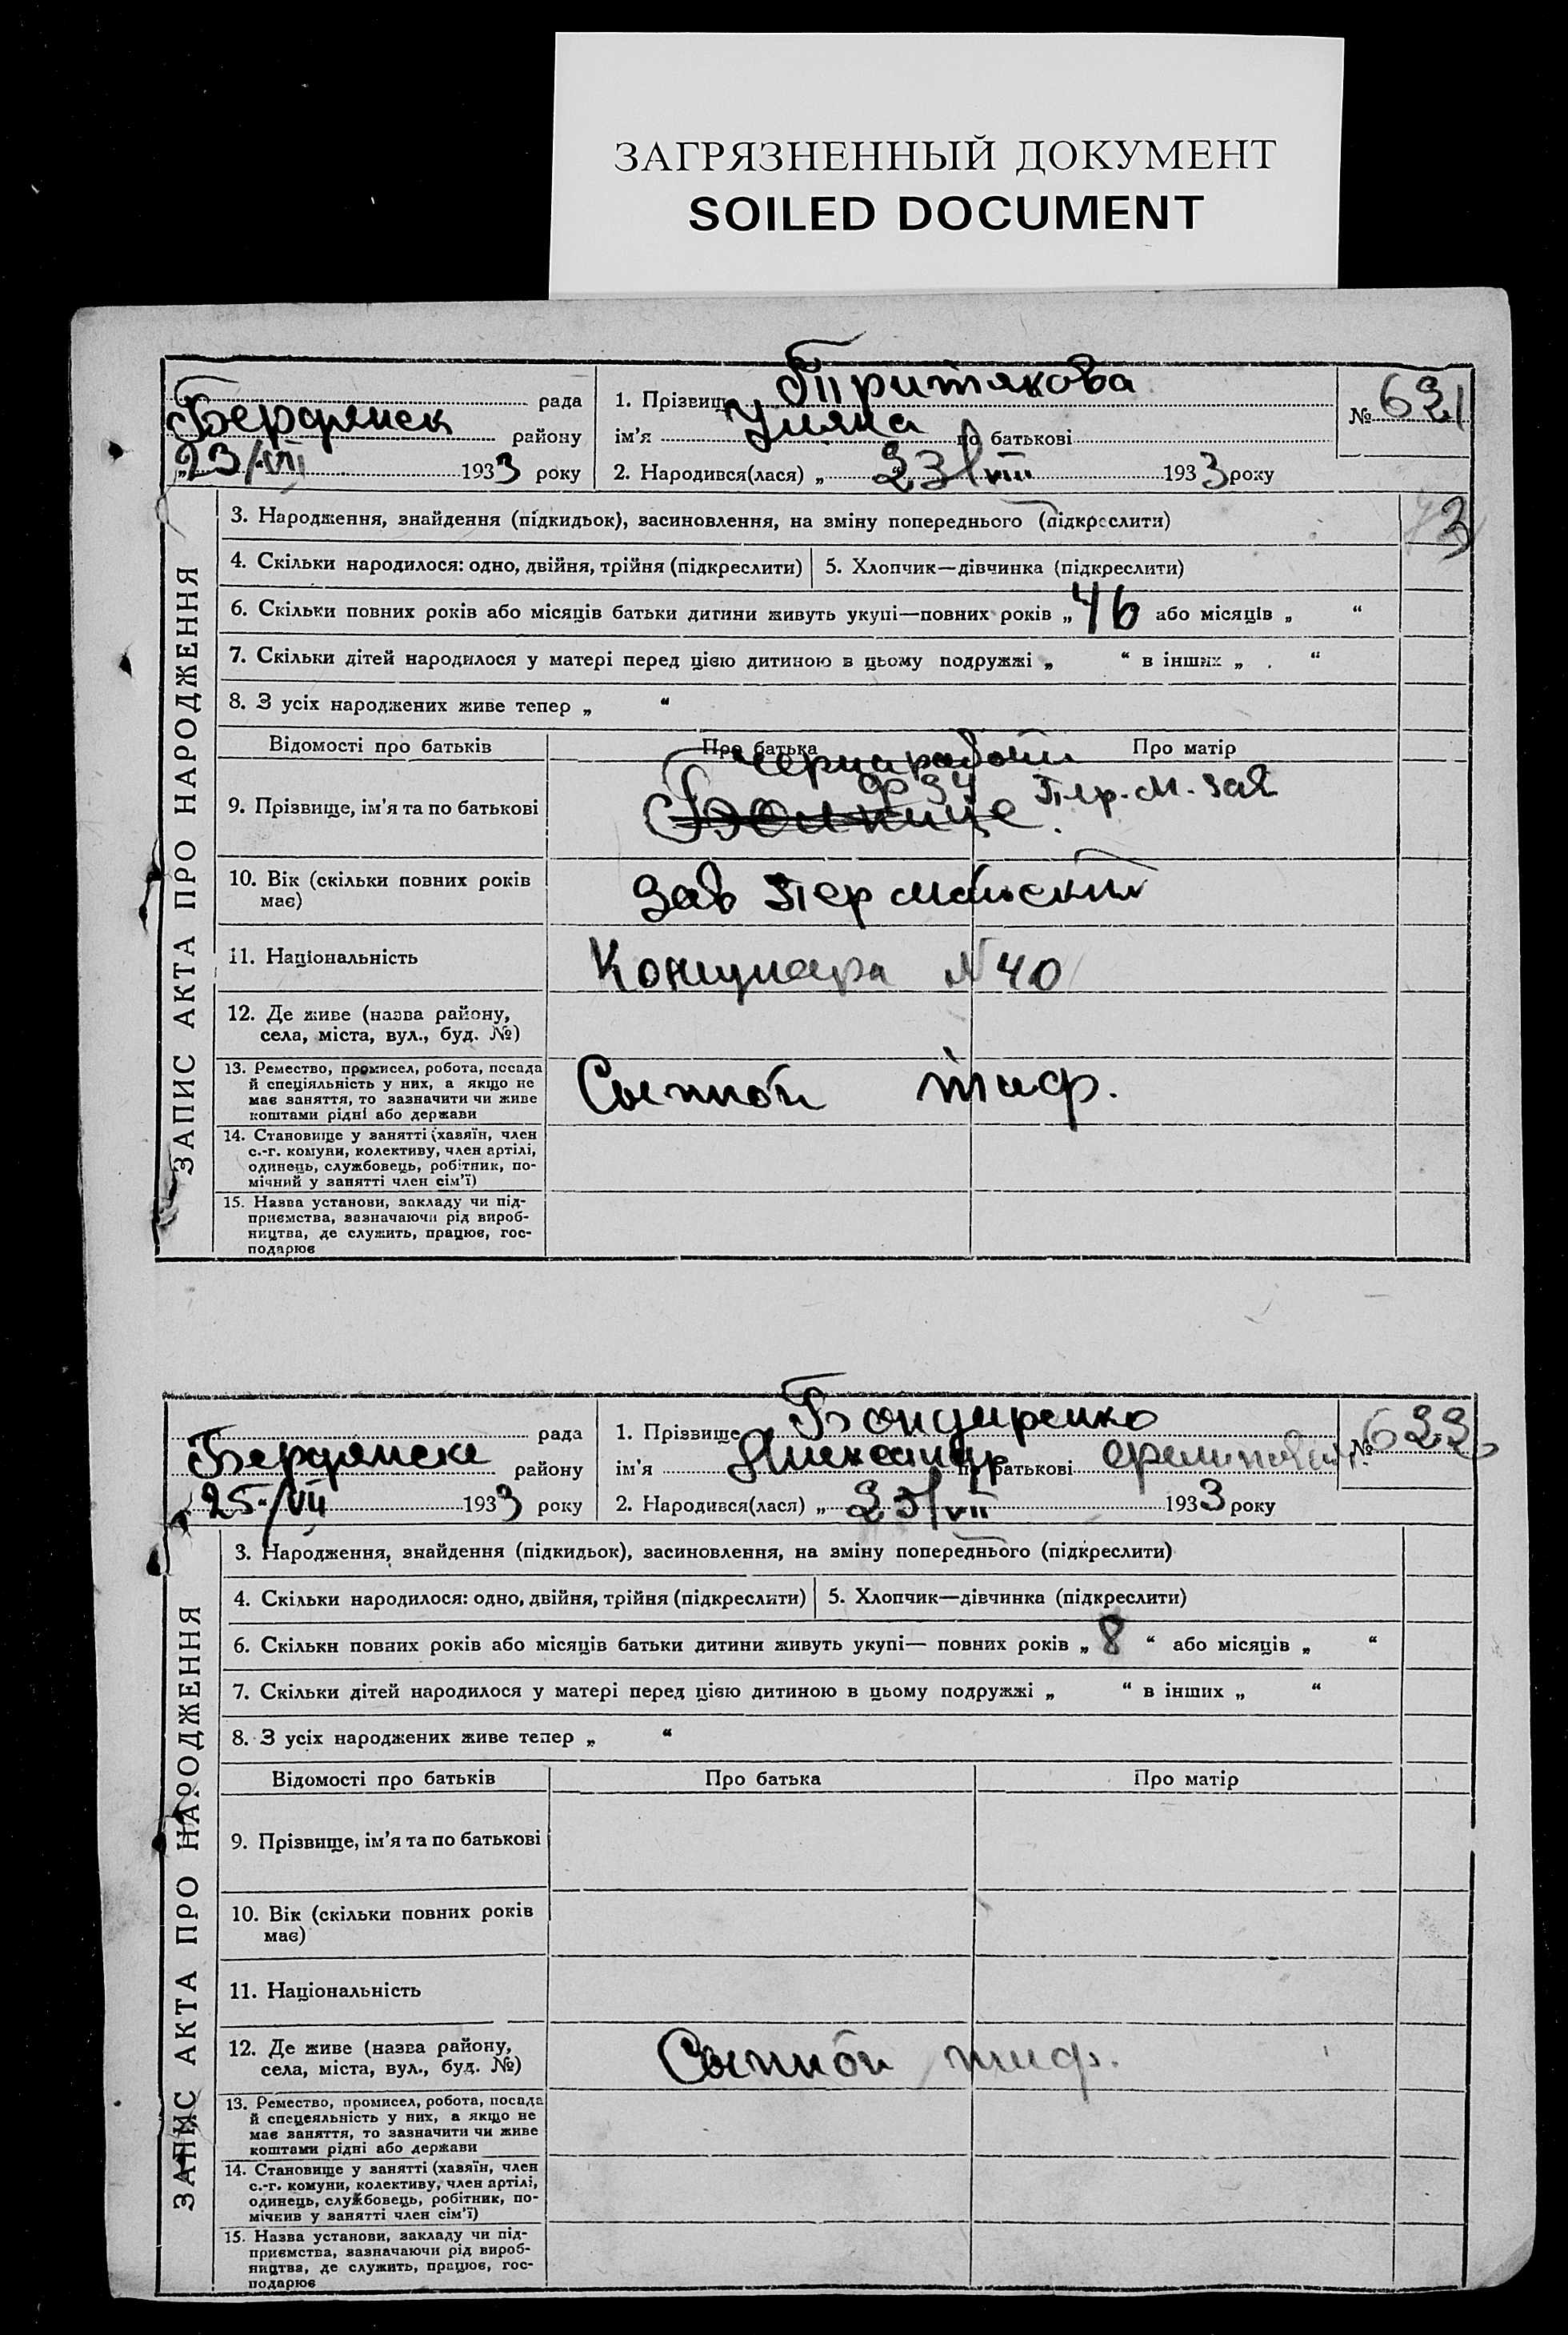 ЗАГРЯЗНЕННЫЙ ДОКУМЕНТ
SOILED DOCUMENT
рада
Бердянск району
23/VII 1933 року
1. Прізвище Притякова
ім’я Уляна по батькові
2. Народився(лася) „ 23/VIII 1933 року
№ 621
3
ЗАПИС АКТА ПРО НАРОДЖЕННЯ
3. Народження, знайдення (підкидьок), засиновлення, на зміну попереднього (підкреслити)
4. Скільки народилося: одно, двійня, трійня (підкреслити)
5. Хлопчик—дівчинка (підкреслити)
6. Скільки повних років або місяців батьки дитини живуть укупі—повних років „ 46 або місяців „ “
7. Скільки дітей народилося у матері перед цією дитиною в цьому подружжі „ “ в інших „ “
8. З усіх народжених живе тепер „ “
Відомості про батьків
Про батька
Про матір
9. Прізвище, ім’я та по батькові
Пер. М. зав
10. Вік (скільки повних років має)
Зав Пер майский
11. Національність
N 40
12. Де живе (назва району, села, міста, вул., буд. №)
13. Ремество, промисел, робота, посада
й спеціяльність у них, а якщо не
має заняття, то зазначити чи живе
коштами рідні або держави
Сыпной тиф.
14. Становище у занятті (хазяїн, член
с.-г. комуни, колективу, член артілі,
одинець, службовець, робітник, по-
мічний у занятті член сім’ї)
15. Назва установи, закладу чи під-
приємства, зазначаючи рід вироб-
ництва, де служить, працює, гос-
подарює
рада
Бердянске району
25/VII 1933 року
1. Прізвище Бондаренко
ім’я Александр по батькові
2. Народився(лася) „ 25/VII 1933 року
№ 622
ЗАПИС АКТА ПРО НАРОДЖЕННЯ
3. Народження, знайдення (підкидьок), засиновлення, на зміну попереднього (підкреслити)
4. Скільки народилося: одно, двійня, трійня (підкреслити)
5. Хлопчик—дівчинка (підкреслити)
6. Скільки повних років або місяців батьки дитини живуть укупі— повних років „ 8 “ або місяців „ “
7. Скільки дітей народилося у матері перед цією дитиною в цьому подружжі „ “ в інших „ “
8. З усіх народжених живе тепер „ “
Відомості про батьків
Про батька
Про матір
9. Прізвище, ім’я та по батькові
10. Вік (скільки повних років має)
11. Національність
12. Де живе (назва району, села, міста, вул., буд. №)
Сыпной тиф.
13. Ремество, промисел, робота, посада
й спецеяльність у них, а якщо не
має заняття, то зазначити чи живе
коштами рідні або держави
14. Становище у занятті (хазяїн, член
с.-г. комуни, колективу, член артілі,
одинець, службовець, робітник, по-
мічнив у занятті член сім’ї)
15. Назва установи, закладу чи під-
приємства, зазначаючи рід вироб-
ництва, де служить, працює, гос-
подарює